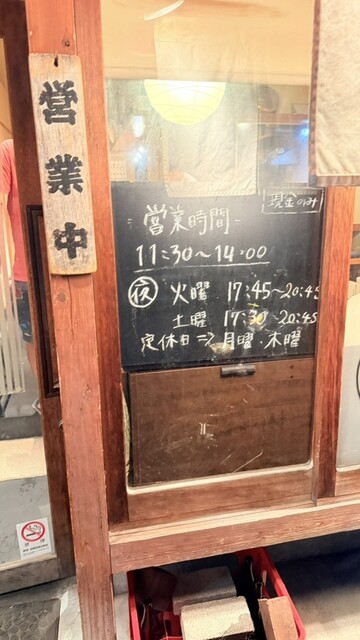 営業中
営業時間
現金のみ
11:30〜14:00
夜 火曜 17:45〜20:45
土曜 17:30〜20:45
定休日⇒月曜・木曜